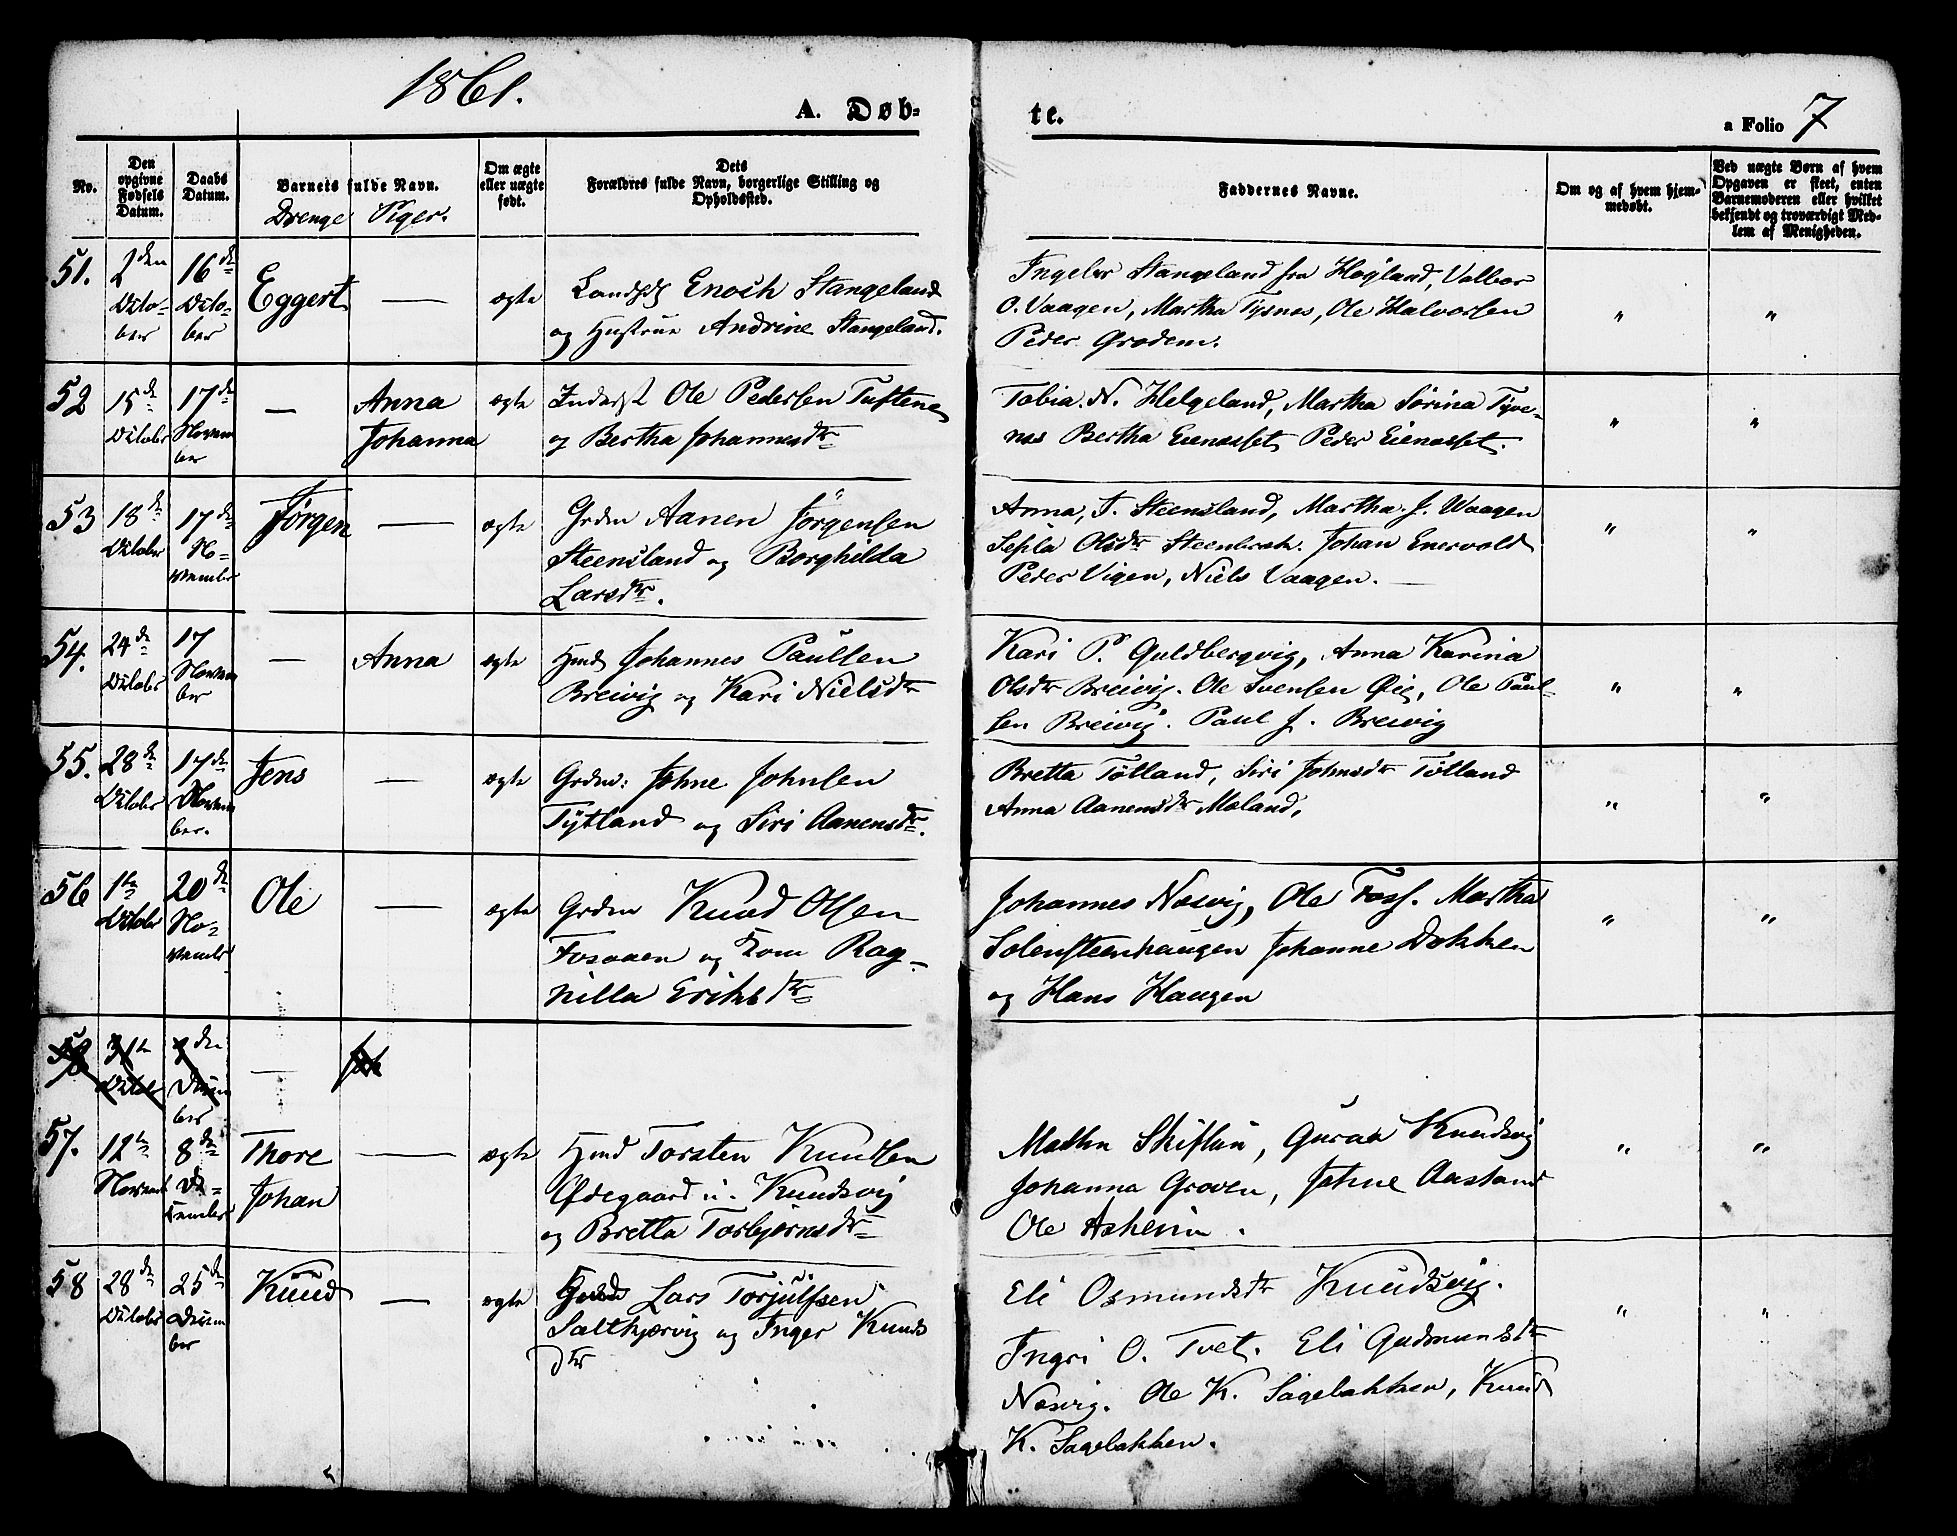 1861.
A. Døb-
te.
a Folio 7
No.
Den
opgivne
Fødsels
Datum.
Daabs
Datum.
Barnets fulde Navn.
Drenge Piger.
Om ægte
eller uægte
født.
Dets
Forældres fulde Navn, borgerlige Stilling og
Opholdssted.
Faddernes Navne.
Om og af hvem hjem-
medøbt.
Ved uægte Børn af hvem
Opgaven er skeet, enten
Barnemoderen eller hvilket
bekjendt og troværdigt Med-
lem af Menigheden.
51.
2den
Octo-
ber
16de
Octo-
ber
Eggert
—
ægte
Enoch Stangeland
og Hustrue Andrine Stangeland.
Ingebr Stangeland fra Høgland, Valbor
O. Vaagen, Martha Tysnes, Ole Halvorsen
Peder Grødem.
"
"
52
15de
October
17de
Novem
ber
—
Anna
Johanna
ægte
Inderst Ole Pedersen Tuftene
og Bertha Johannesdtr
Tobia. N. Helgeland, Martha Sørina Tyve-
nes Bertha Eienæsset, Peder Eienæsset.
"
"
53
18de
October
17de
No-
vember
Jørgen
—
ægte
Grdm Aanen Jørgensen
Steensland og Borghilda
Larsdtr.
Anna, T. Steensland, Martha J. Waagen
Olsdtr Johan Enervold
Peder Vigen, Niels Vaagen. —
"
"
54.
24de
October
17
Novem
ber
—
Anna
ægte
Hmd Johannes Paulsen
Breivig og Kari Nielsdtr
Kari P. Guldbergvig, Anna Karina
Olsdtr Breivig. Ole Svensen Øie, Ole Paul-
sen Breivig. Paul J. Breivig
"
"
55.
28de
October
17de
Novem
ber.
Jens
—
ægte
Grdm: Johne Johnsen
Tytland og Siri Aanensdtr.
Bretta Tøtland, Siri Johnsdtr Tøtland
Anna Aanensdtr Maland.
"
"
56
1ste
October
20de
No-
vember
Ole
—
ægte
Grdm Knud Olsen
Fosaaen og Kom Rag-
nilla Eriksdtr
Johannes Næsvig, Ole Foss. Martha
Solensteenhaugen Johanne Dokken
og Hans Haugen
"
"
58
31te
Octob
den
Decem
ber
—
57.
12te
Novemb
8de
De-
cember
Thore
Johan
—
ægte
Hmd Torsten Knudsen
Ødegaard u. Knudsvig
og Bretta Torbjørnsdtr
Skiftun, Guroe Knudsvig
Johanna Groven, Johne Aasland
Ole Askeim.
"
"
58
28de
October
25de
Decem
ber
Knud
—
ægte
Lars Torjulfsen
Saltkjærvig og Inger Knuds
dtr
Eli Osmundsdtr Knudsvig.
Ingri O. Tvet. Eli Gudmundsdtr
Næsvig. Ole K. Sagebakken, Knud
K. Sagebakken.
"
"